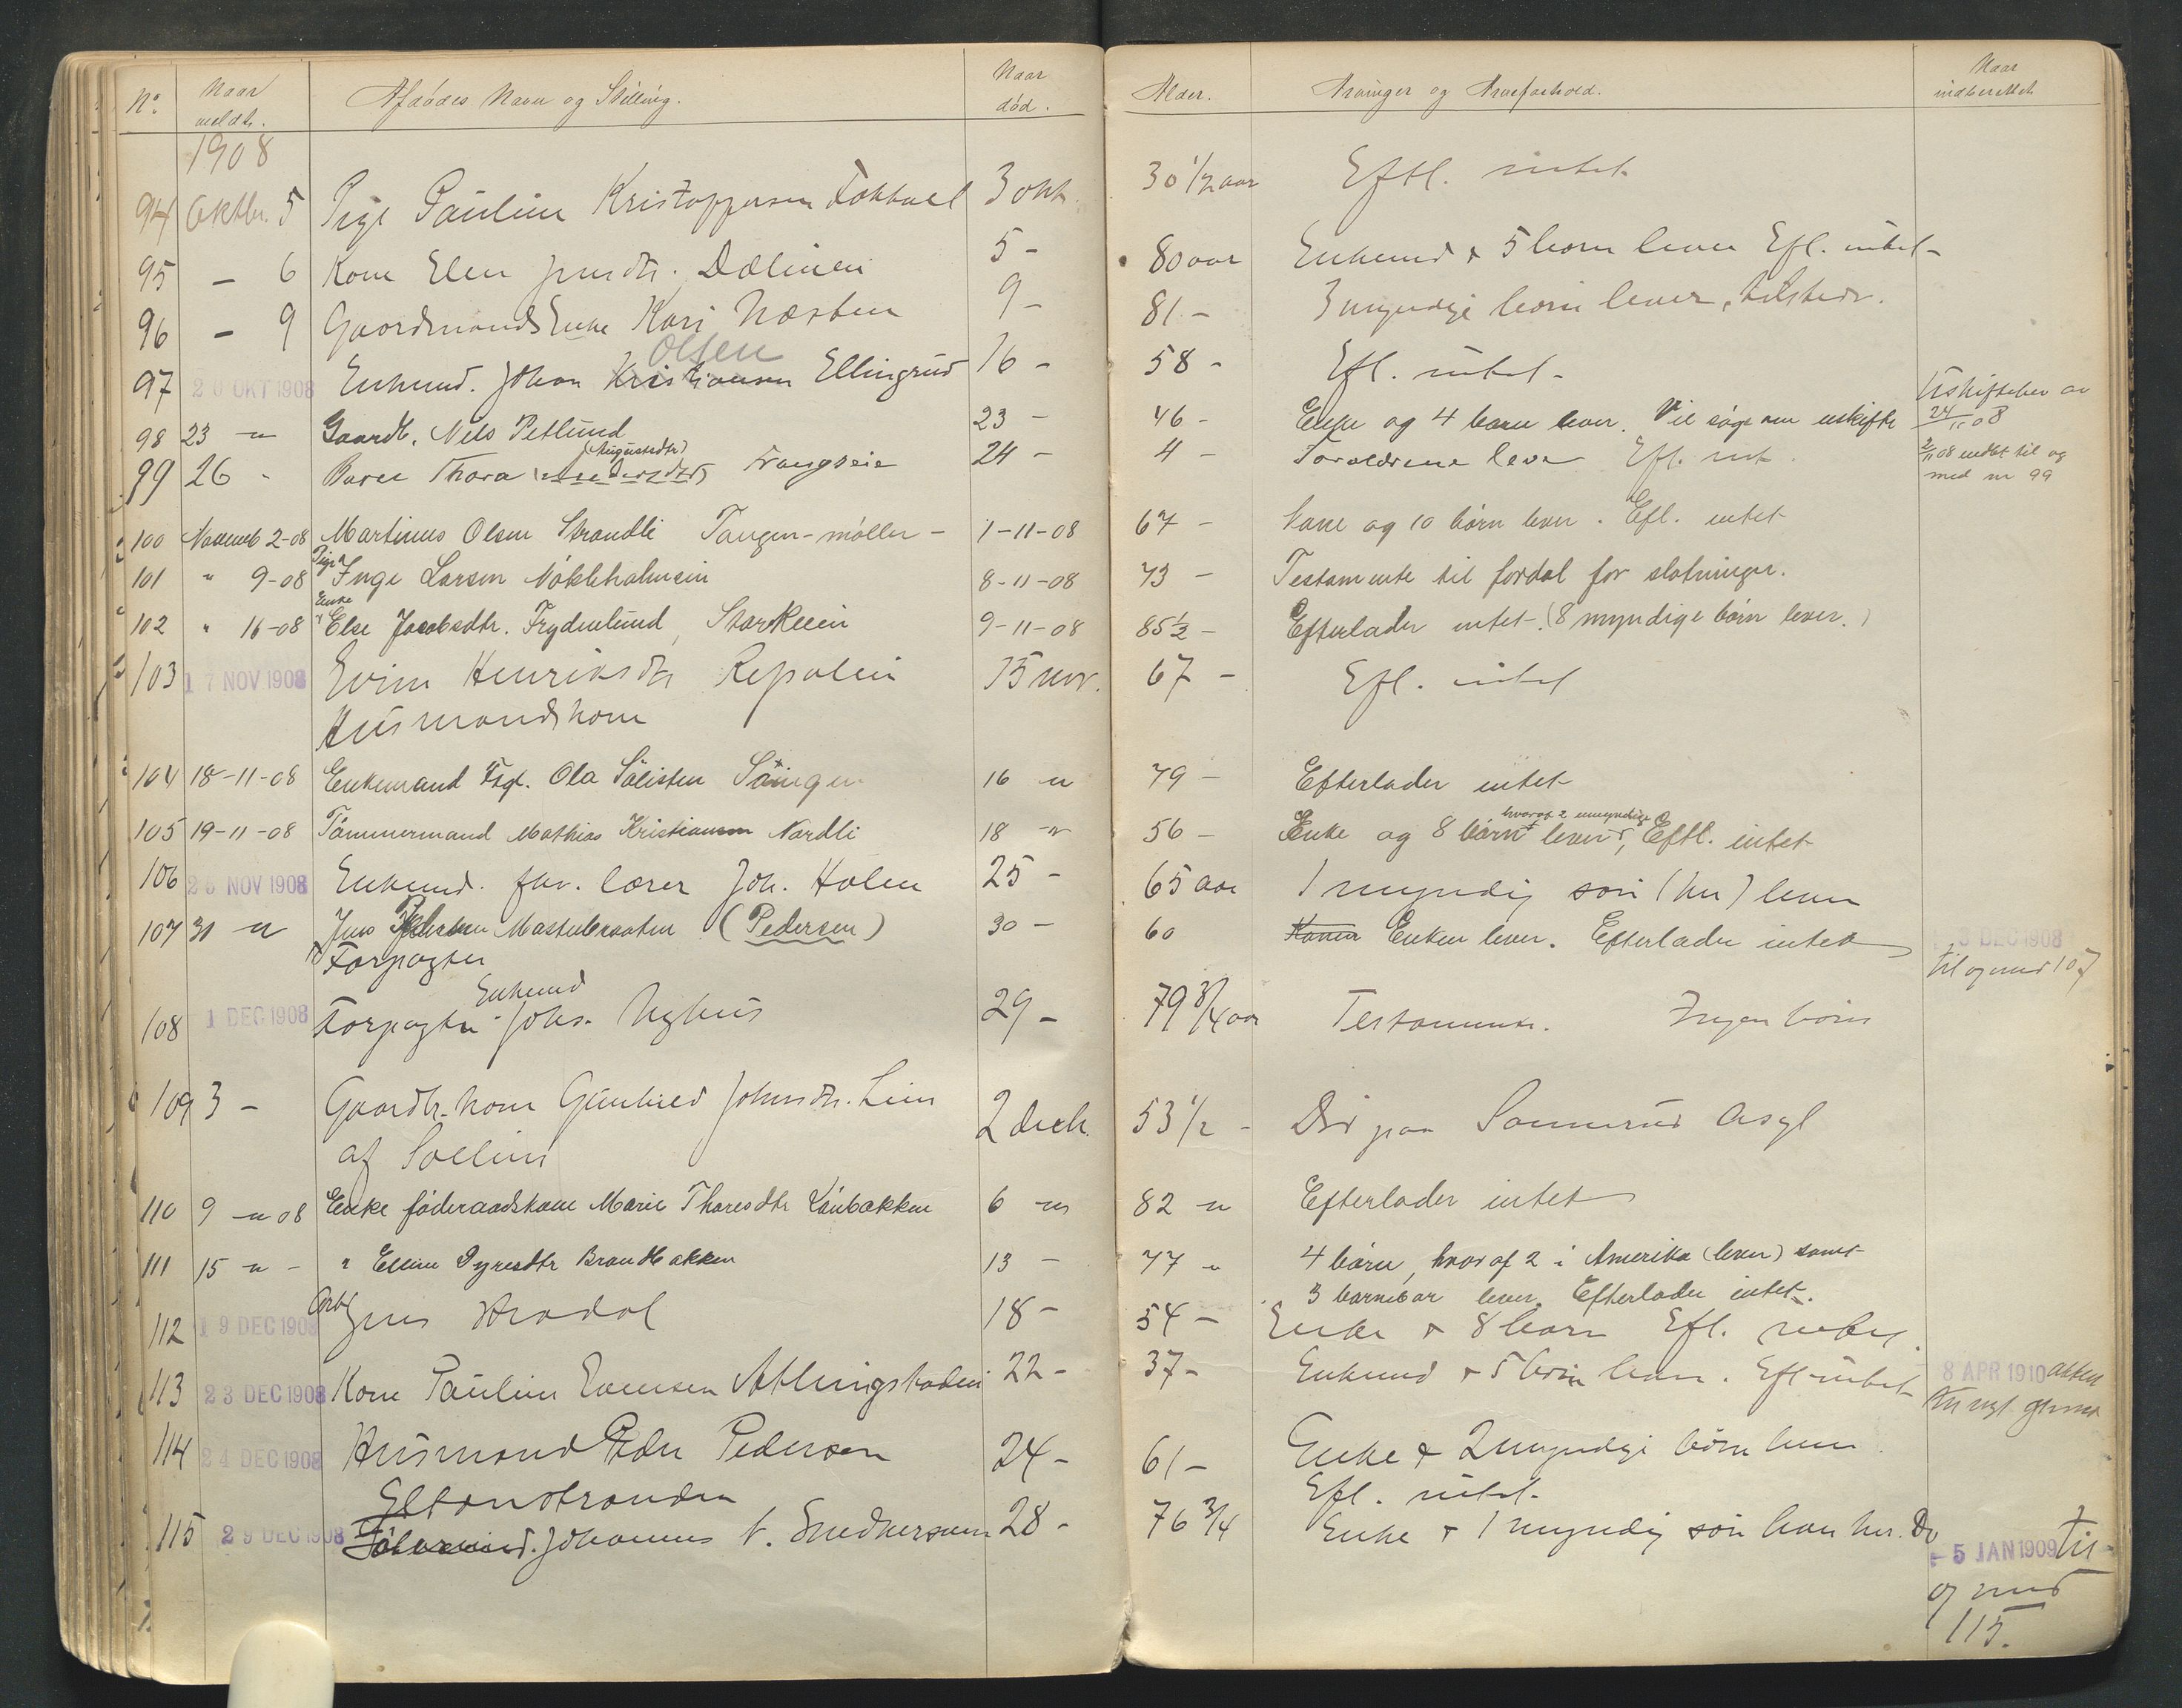 No. Naar meldt. Afdødes Navn og Stilling. Naar død. Alder. Arvinger og Arveforhold. Naar indberettet
1908
94 Oktbr. 5 Pige Pauline Kristoffersen 3 okt. 30 1/2 aar Eftl. intet
95 — 6 Kone Elen Dælineie 5 - 80 aar Enkemd & 5 børn lever Efl. intet -
96 — 9 Gaardmands Enke Kari Næsten 9 - 81 - 3 myndige børn lever, tilstede.
Olsen
97 20 OKT 1908 Enkemd. Johan Kristiansen Ellingrud 16 - 58 - Efl. intet -
98 23 - " Gaardb. Nils Petlund 23 - 46 - Enke og 4 børn lever. Vil søge om uskifte Uskiftebev av 24/11 08
(Augustsdtr)
99 26 - Barn Thora Frangseie 24 - 4 - Forældrene lever Efl. int. 2/11 08 indbt til og
med nr 99
100 Novemb 2-08 Martinus Olsen Strandli Tangen-møller - 1-11-08 67 - Kone og 10 børn lever. Efl. intet
Pige
101 " 9-08 Inge Larsen 8-11-08 73 - Testamente til fordel for slægtninger.
Enke
102 " 16-08 Else Jacobsdtr. Frydenlund, 9-11-08 85 1/2 - Efterlader intet. (8 myndige børn lever.)
103 17 NOV 1908 Henriksdtr 15 nov. 67 - Efl. intet
Husmandskone
104 18-11-08 Enkemand Ola 16 " 79 - Efterlader intet
hvoraf 2 umyndige
105 19-11-08 Tømmermand Mathias Kristiansen Nordli 18 " 56 - Enke og 8 børn lever, Eftl. intet
106 25 NOV 1908 Enkemd. fhv. lærer Joh. Holen 25 - 65 aar 1 myndig søn (her) lever
107 30 " Jens Mastubraaten (Pedersen) 30 - 60 Konen Enken lever. Efterlader intet 3 DEC 1908
Forpagter til og med 107
Enkemd
108 1 DEC 1908 Forpagter Johs. Nyhus 29 - 79 3/4 aar Testamente. Ingen børn
109 3 - Gaardbr. kone Gunhild Johnsdtr. Lien 2 decb. 53 1/2 - Død paa Sannerud Asyl
af
110 9 - " 08 Enke føderaadskone Marie Thoresdtr Lønbakken 6 - " 82 " Efterlader intet
111 15 " - " Elline Syversdtr Brandbakken 13 - 77 " 4 børn, hvoraf 2 i Amerika (lever) samt
3 barnebar lever. Efterlader intet.
112 19 DEC 1908 Arb. Jens 18 - 54 - Enke & 8 børn Efl. intet.
113 23 DEC 1908 Kone Pauline Evensen 22 - 37 - Enkemd & 5 børn lever. Efl intet 8 APR 1910
114 24 DEC 1908 Husmand Peder Pedersen 24 - 61 - Enke & 2 myndige børn lever.
Eltonstranden Efl. intet -
115 29 DEC 1908 Johannes 28 - 76 3/4 Enke & 1 myndig søn her. Do
5 JAN 1909 til
og med
115.